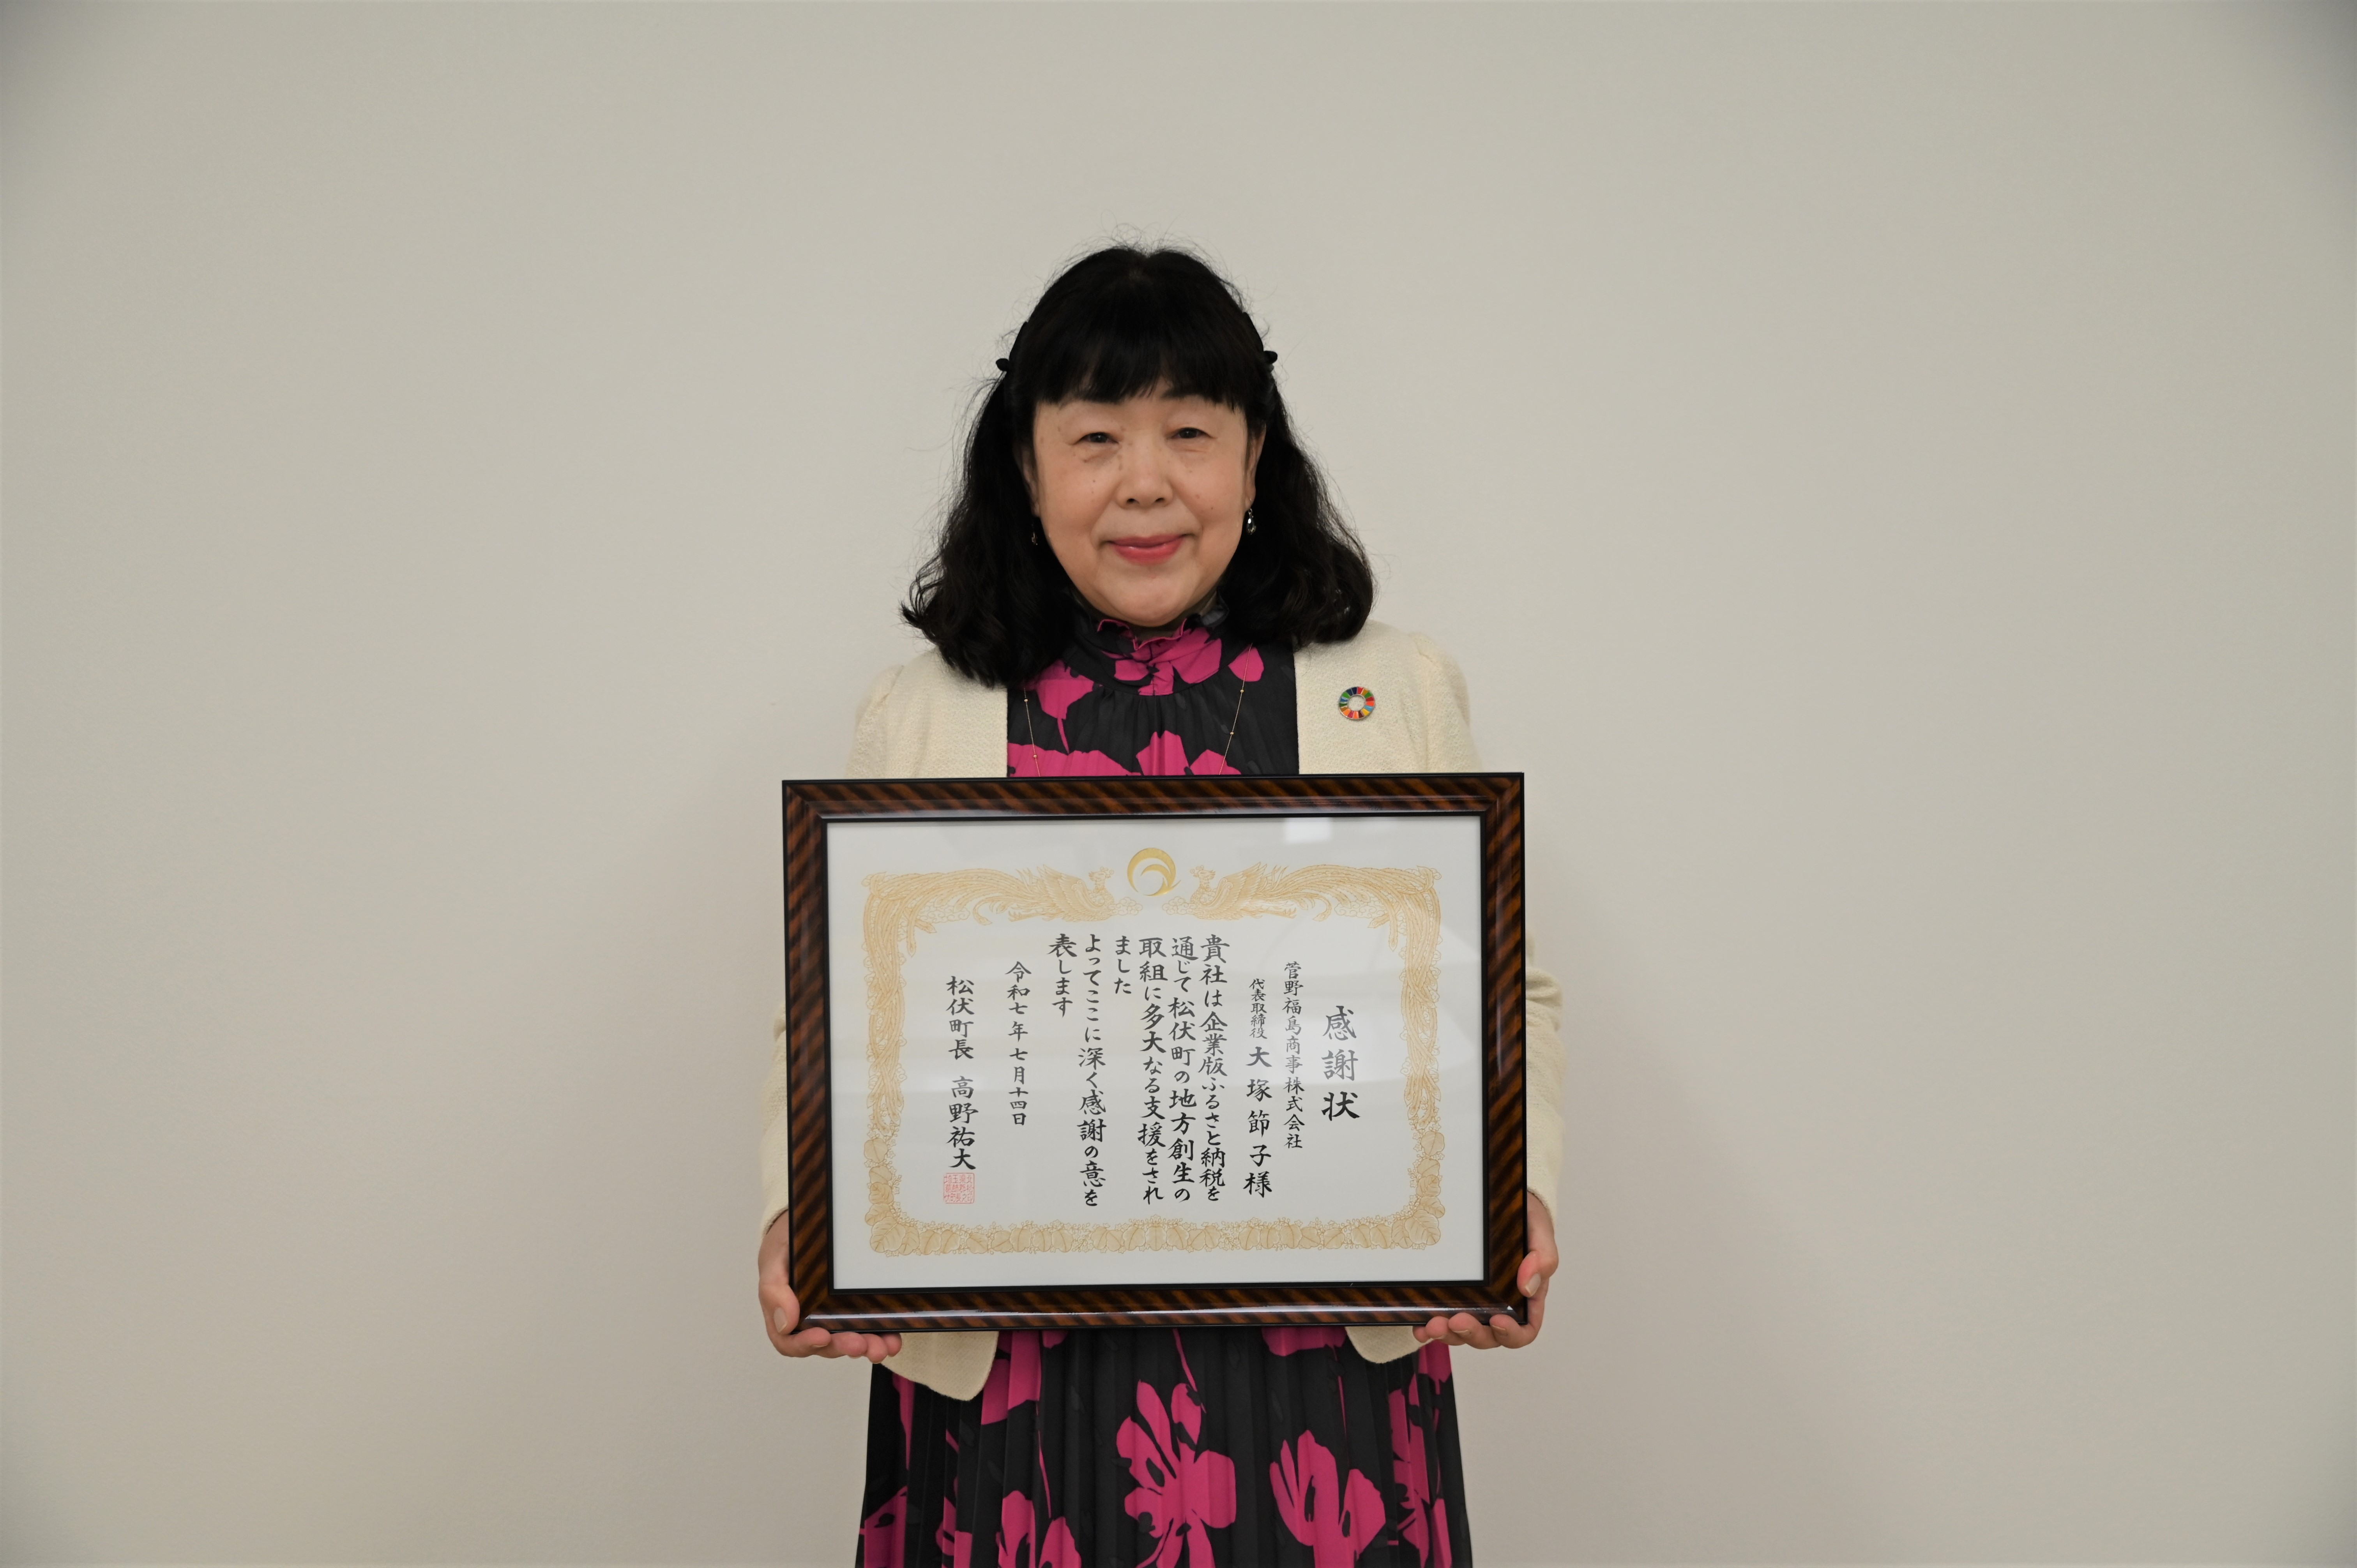 感謝状
菅野福島商事株式会社
代表取締役 大塚節子様
貴社は企業版ふるさと納税を
通じて松伏町の地方創生の
取組に多大なる支援をされ
ました
よってここに深く感謝の意を
表します
令和七年七月十四日
松伏町長 高野祐大